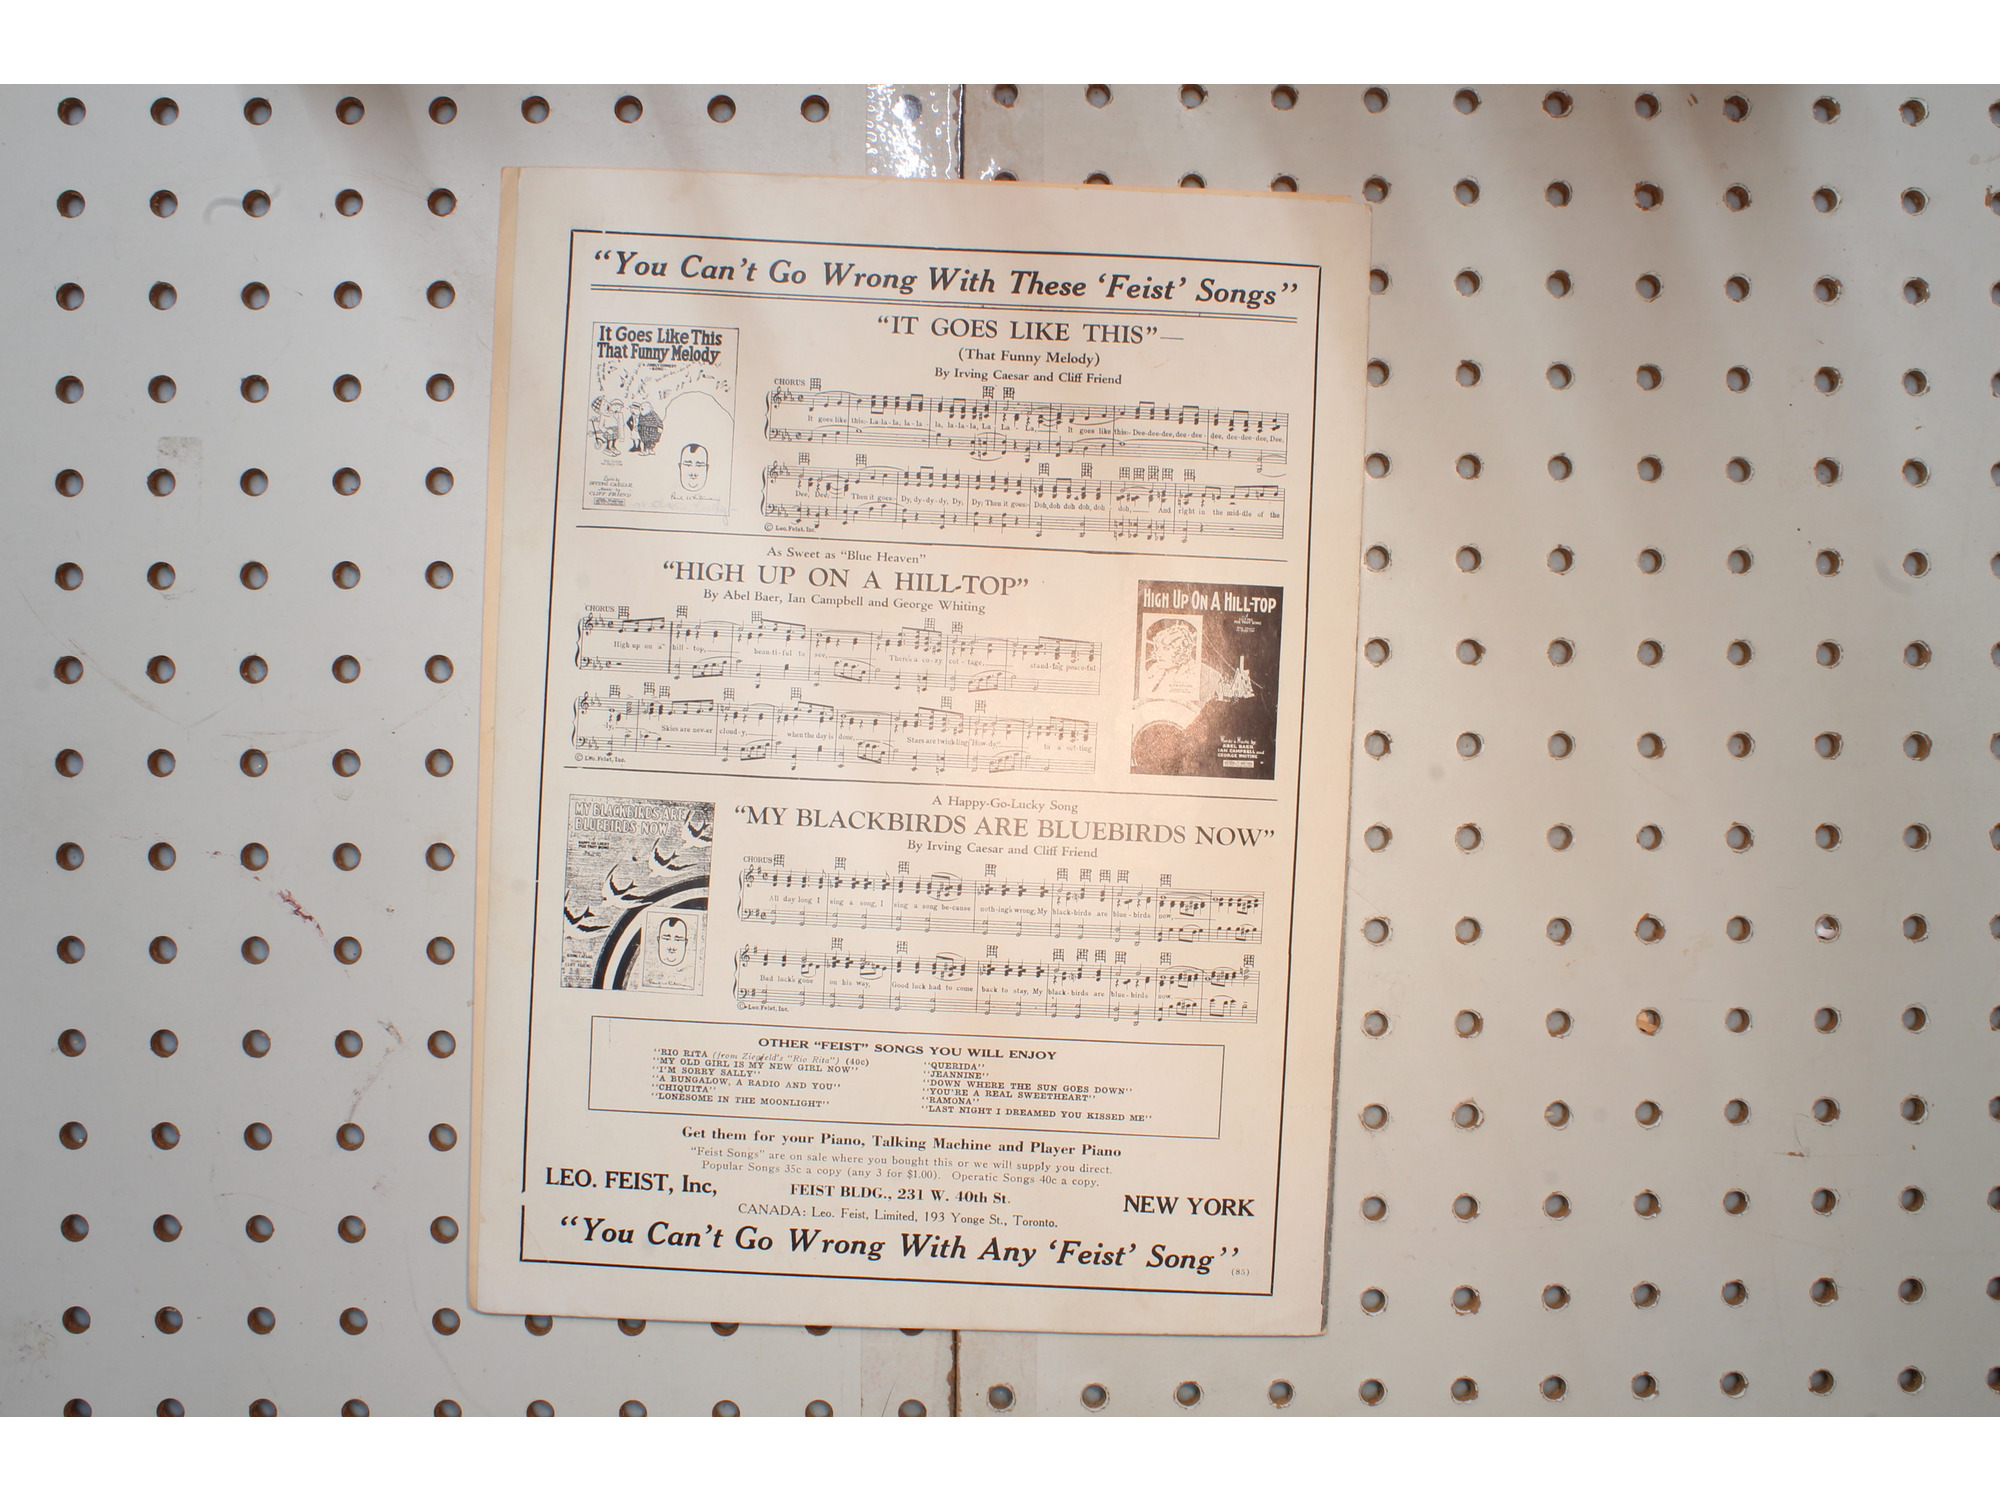 “You Can’t Go Wrong With These ‘Feist’ Songs”
It Goes Like This
That Funny Melody
CLIFF FRIEND
“IT GOES LIKE THIS”—
(That Funny Melody)
By Irving Caesar and Cliff Friend
CHORUS
It goes like this:- La-la-la, la-la la, la-la-la, La La La, It goes like this:- Dee-dee-dee, dee-dee- dee, dee-dee-dee, Dee,
Dee, Dee, Then it goes:- Dy, dy-dy-dy, Dy, Dy; Then it goes:- Doh, doh doh doh, doh doh, And right in the mid-dle of the
© Leo. Feist, Inc.
As Sweet as “Blue Heaven”
“HIGH UP ON A HILL-TOP”
By Abel Baer, Ian Campbell and George Whiting
CHORUS
High up on a hill-top, beau-ti-ful to see, There's a co-zy cot-tage, stand-ing peace-ful-
ly, Skies are nev-er cloud-y, when the day is done, Stars are twink-ling "How-dy," to a set-ting
© Leo. Feist, Inc.
HIGH UP ON A HILL-TOP
Words & Music by
ABEL BAER
IAN CAMPBELL and
GEORGE WHITING
MY BLACKBIRDS ARE
BLUEBIRDS NOW
A Happy-Go-Lucky Song
“MY BLACKBIRDS ARE BLUEBIRDS NOW”
By Irving Caesar and Cliff Friend
CHORUS
All day long I sing a song, I sing a song be-cause noth-ing's wrong, My black-birds are blue-birds now,
Bad luck's gone on his way, Good luck had to come back to stay, My black-birds are blue-birds now.
© Leo. Feist, Inc.
OTHER “FEIST” SONGS YOU WILL ENJOY
"RIO RITA (from Ziegfeld's "Rio Rita") (40c)
"MY OLD GIRL IS MY NEW GIRL NOW"
"I'M SORRY SALLY"
"A BUNGALOW, A RADIO AND YOU"
"CHIQUITA"
"LONESOME IN THE MOONLIGHT"
"QUERIDA"
"JEANNINE"
"DOWN WHERE THE SUN GOES DOWN"
"YOU'RE A REAL SWEETHEART"
"RAMONA"
"LAST NIGHT I DREAMED YOU KISSED ME"
Get them for your Piano, Talking Machine and Player Piano
"Feist Songs" are on sale where you bought this or we will supply you direct.
Popular Songs 35c a copy (any 3 for $1.00). Operatic Songs 40c a copy.
LEO. FEIST, Inc, FEIST BLDG., 231 W. 40th St. NEW YORK
CANADA: Leo. Feist, Limited, 193 Yonge St., Toronto.
“You Can’t Go Wrong With Any ‘Feist’ Song”
(85)